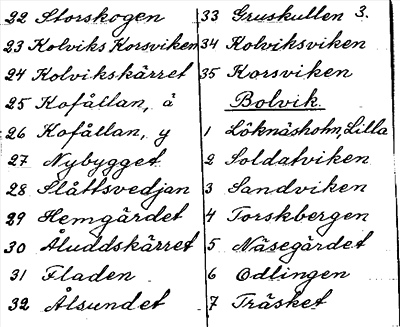 22 Storskogen
23 Kolviks Korsviken
24 Kolvikskärret
25 Kofållan, å
26 Kofållan, y
27 Nybygget
28 Slåttsvedjan
29 Hemgärdet
30 Åluddskärret
31 Fladen
32 Ålsundet
33 Gruskullen 3.
34 Kolviksviken
35 Korsviken
Bolvik
1 Löknäsholm, Lilla
2 Soldatviken
3 Sandviken
4 Torskbergen
5 Näsegärdet
6 Odlingen
7 Träsket